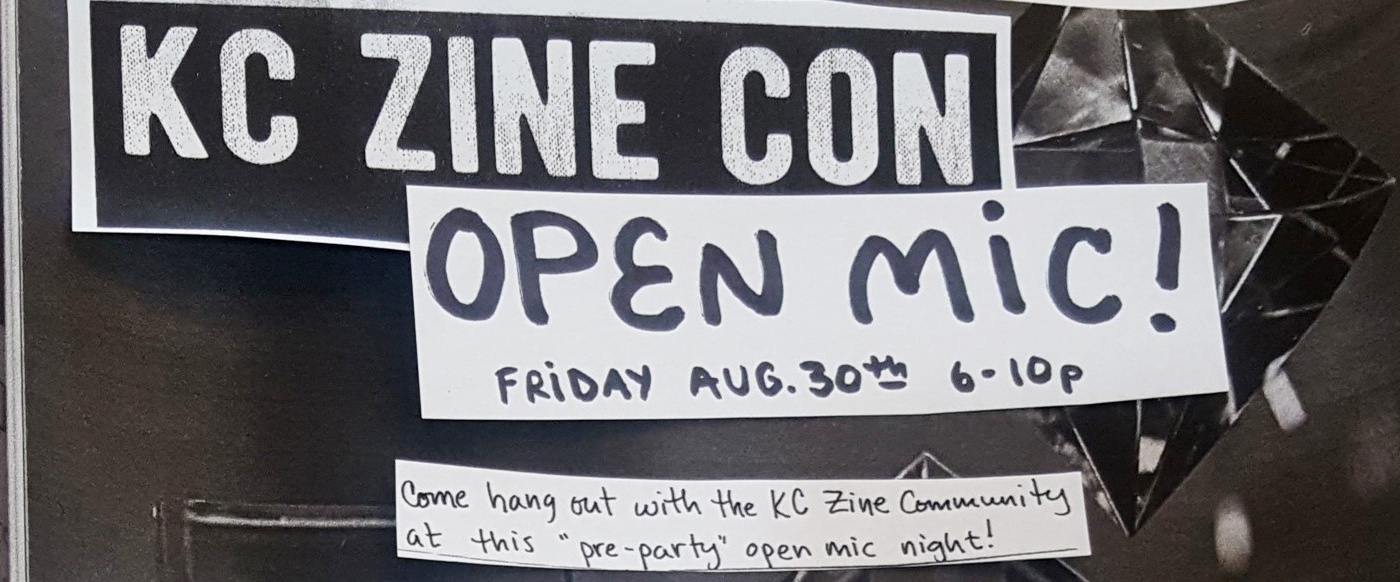 KC ZINE CON
OPEN MiC!
FRiDAY AUG. 30th 6-10p
Come hang out with the KC Zine Community
at this "pre-party" open mic night!